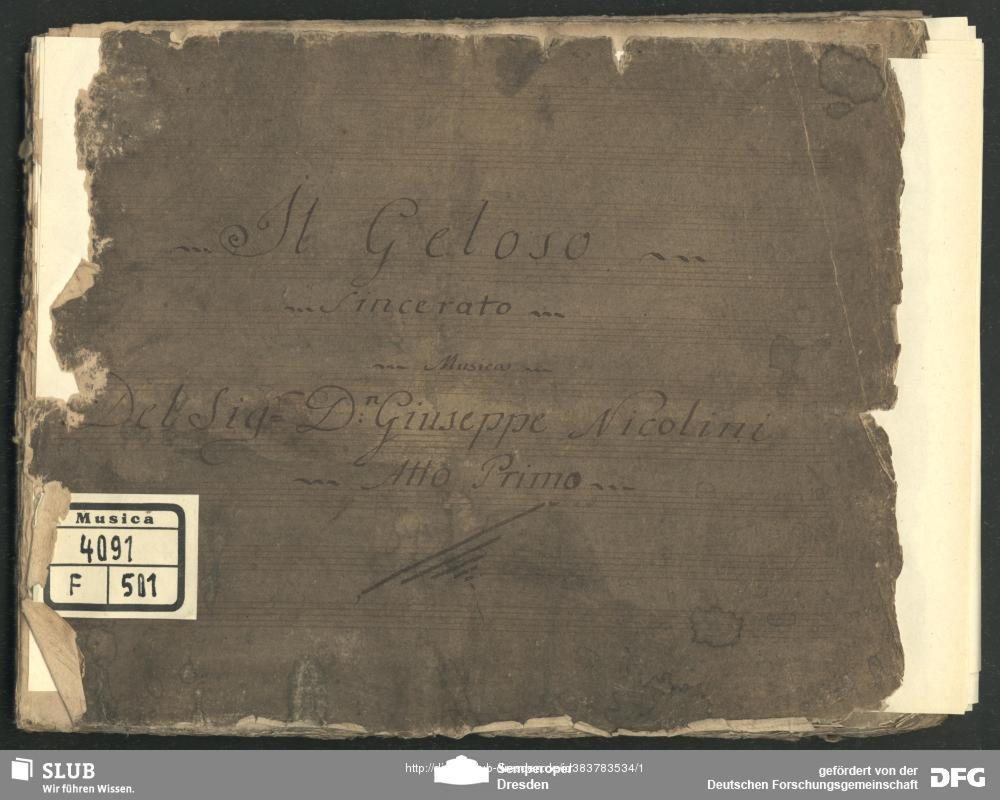 Il Geloso
Sincerato
Musica
Del Sigr. D:n Giuseppe Nicolini
Atto Primo
Musica
4091
F 501
SLUB
Wir führen Wissen.
Semperoper
Dresden
gefördert von der
Deutschen Forschungsgemeinschaft
DFG